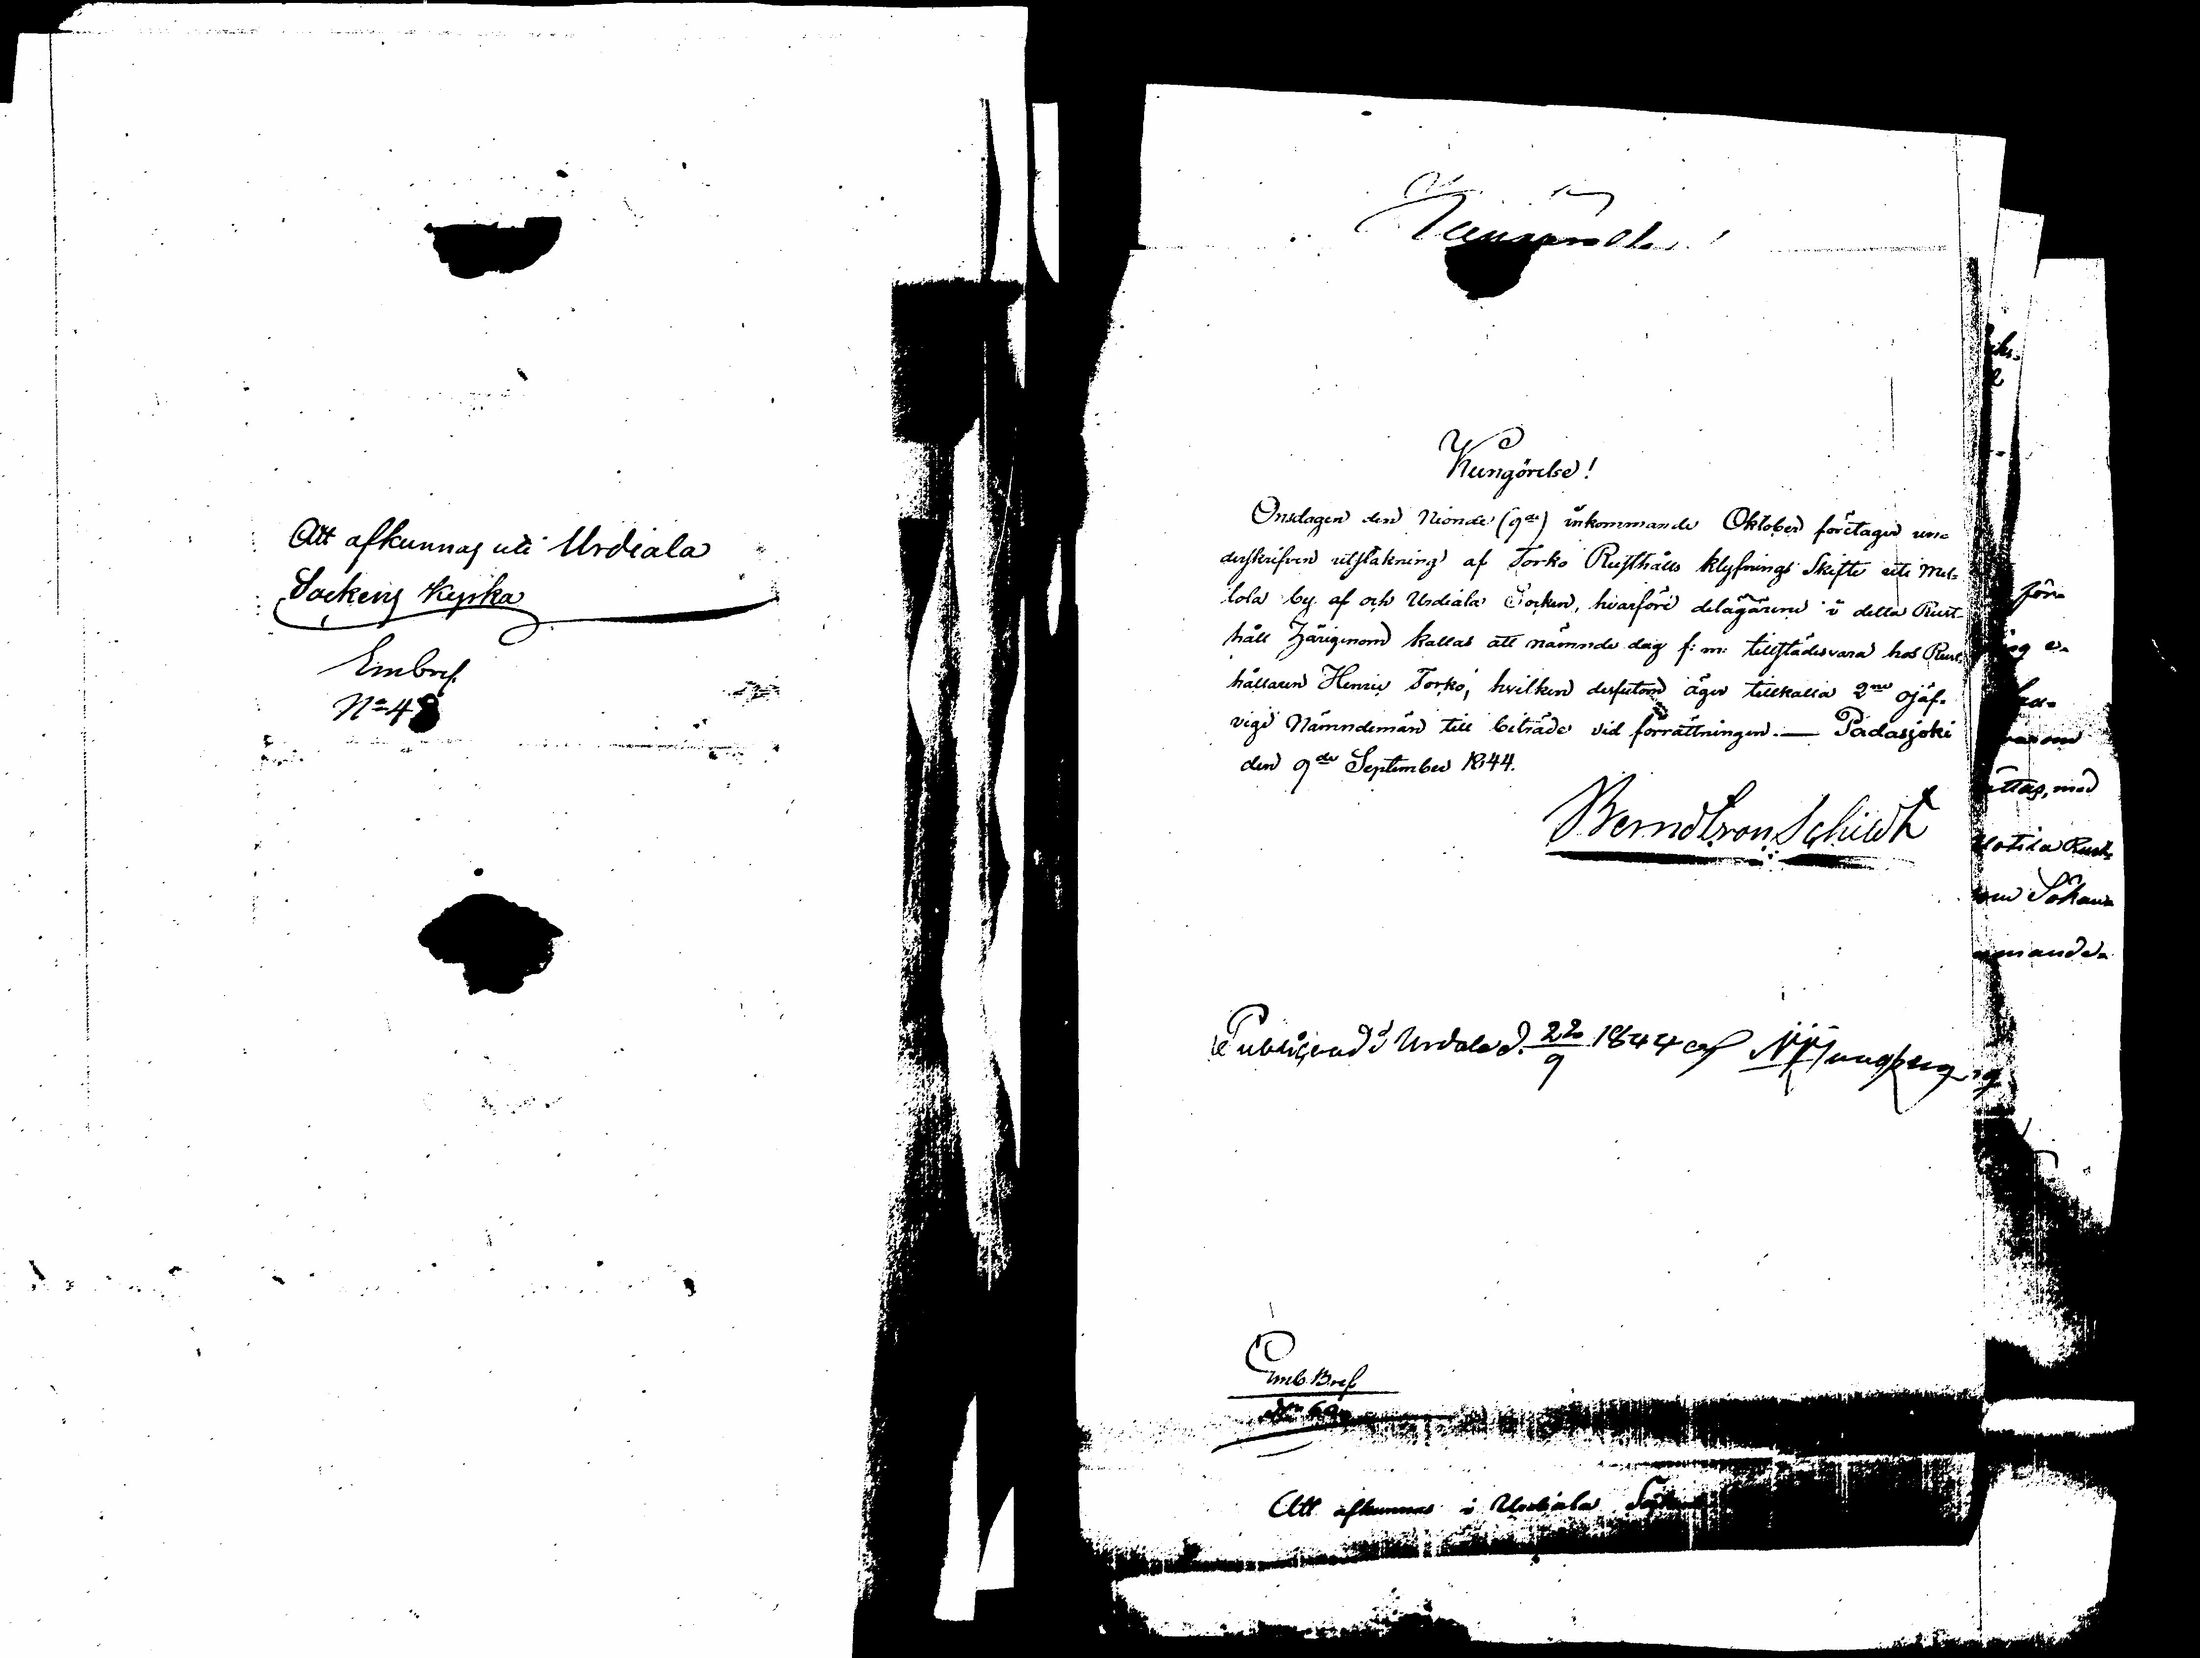 Att afkunnas uti Urdiala
Sockens Kyrka
Embref
No 48
Kungörelse!
Onsdagen den Nionde (9de) inkommande Oktober företager un-
derskrifven utstakning af Torko Rusthålls klyfnings Skifte uti Mel-
lola by af och Urdiala Socken, hvarföre delägarene i detta Rust-
håll härigenom kallas att nämnde dag f: m: tillstädesvara hos Rust-
hållaren Henric Torko, hvilken dessutom äger tillkalla 2ne ojäf-
vige Nämndemän till biträde vid förrättningen. — Padasjoki
den 9de September 1844.
Berndt von Schildt
Publicerad i Urdiala d. 22/9 1844 af
Emb. Bref
Att afkunnas i Urdiala
för-
ottas, med
Rust-
mande-